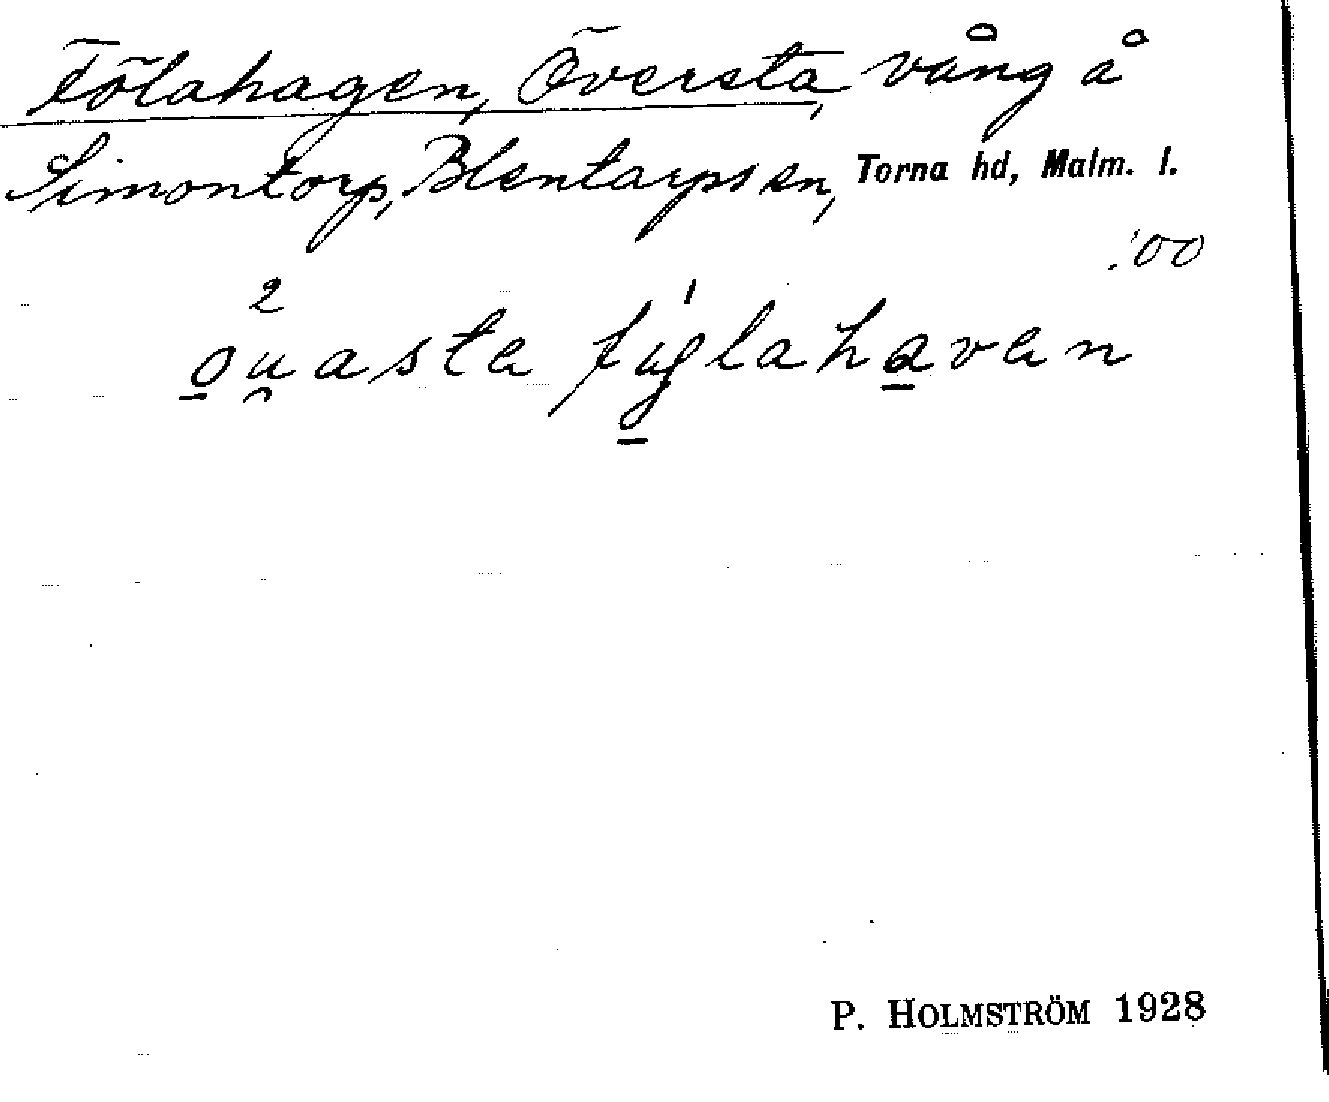 Fölahagen, Översta, vång å
Simontorp, Blentarps sn, Torna hd, Malm. l.
:00
2 1
ou̯asta fyglahaven
P. HOLMSTRÖM 1928